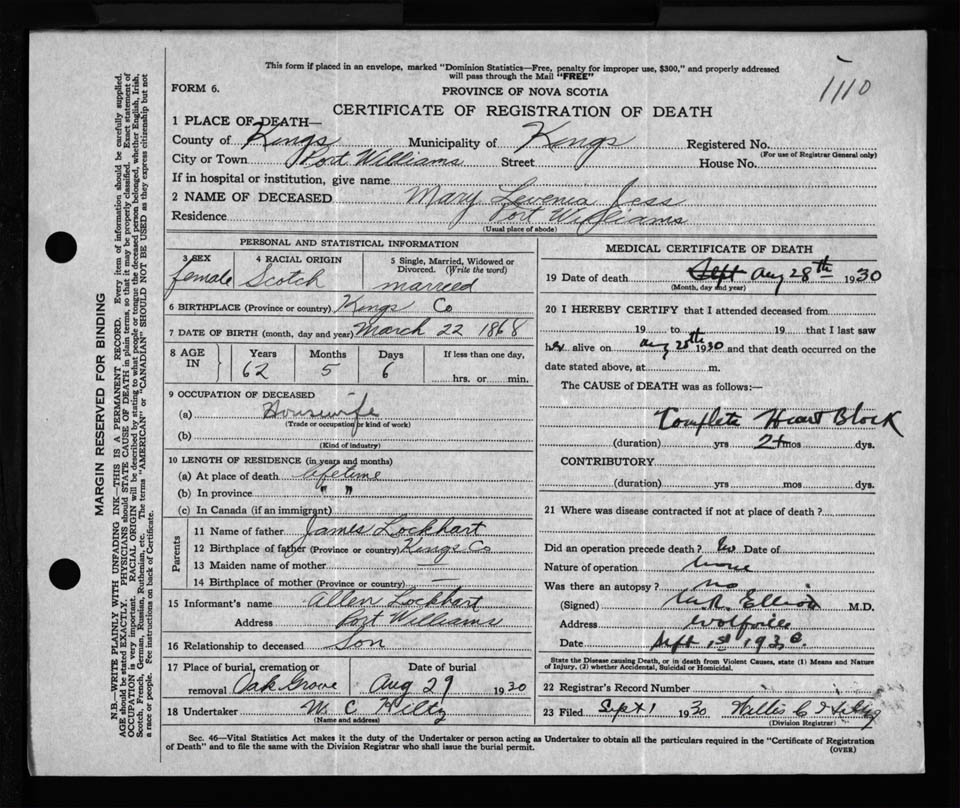 This form if placed in an envelope, marked "Dominion Statistics—Free, penalty for improper use, $300," and properly addressed
will pass through the Mail "FREE"
1110
FORM 6.
PROVINCE OF NOVA SCOTIA
CERTIFICATE OF REGISTRATION OF DEATH
1 PLACE OF DEATH—
County of Kings Municipality of Kings Registered No.
(For use of Registrar General only)
City or Town Port Williams Street House No.
If in hospital or institution, give name
2 NAME OF DECEASED Mary Levenia Jess
Residence Port Williams
(Usual place of abode)
PERSONAL AND STATISTICAL INFORMATION
3 SEX 4 RACIAL ORIGIN 5 Single, Married, Widowed or
Divorced. (Write the word)
female Scotch married
6 BIRTHPLACE (Province or country) Kings Co
7 DATE OF BIRTH (month, day and year) March 22 1868
8 AGE IN Years Months Days If less than one day,
62 5 6 hrs. or min.
9 OCCUPATION OF DECEASED
(a) Housewife
(Trade or occupation or kind of work)
(b)
(Kind of industry)
10 LENGTH OF RESIDENCE (in years and months)
(a) At place of death lifetime
(b) In province " "
(c) In Canada (if an immigrant)
Parents
11 Name of father James Lockhart
12 Birthplace of father (Province or country) Kings Co
13 Maiden name of mother —
14 Birthplace of mother (Province or country) —
15 Informant's name Allen Lockhart
Address Port Williams
16 Relationship to deceased Son
17 Place of burial, cremation or Date of burial
removal Oak Grove Aug 29 1930
18 Undertaker W. C Hiltz
(Name and address)
MEDICAL CERTIFICATE OF DEATH
19 Date of death Sept Aug 28th 1930
(Month, day and year)
20 I HEREBY CERTIFY that I attended deceased from
19 to 19 that I last saw
her alive on Aug 28th 1930 and that death occurred on the
date stated above, at m.
The CAUSE of DEATH was as follows:—
Complete Heart Block
(duration) yrs 2+ mos dys.
CONTRIBUTORY
(duration) yrs mos dys.
21 Where was disease contracted if not at place of death?
Did an operation precede death? No Date of
Nature of operation None
Was there an autopsy? no
(Signed) Elliott M.D.
Address Wolfville
Date Sept 1st 1930
State the Disease causing Death, or in death from Violent Causes, state (1) Means and Nature
of Injury, (2) whether Accidental, Suicidal or Homicidal.
22 Registrar's Record Number
23 Filed Sept 1 1930 Willis C Hiltz
(Division Registrar)
Sec. 46—Vital Statistics Act makes it the duty of the Undertaker or person acting as Undertaker to obtain all the particulars required in the "Certificate of Registration
of Death" and to file the same with the Division Registrar who shall issue the burial permit. (OVER)
MARGIN RESERVED FOR BINDING
N.B.—WRITE PLAINLY WITH UNFADING INK—THIS IS A PERMANENT RECORD. Every item of information should be carefully supplied.
AGE should be stated EXACTLY. PHYSICIANS should STATE CAUSE OF DEATH in plain terms, so that it may be properly classified. Exact statement of
OCCUPATION is very important. RACIAL ORIGIN will be described by stating to what people or tongue the deceased person belonged, whether English, Irish,
Scotch, French, German, Russian, Ruthenian, etc. The terms "AMERICAN" or "CANADIAN" SHOULD NOT BE USED as they express citizenship but not
a race or people. See instructions on back of Certificate.